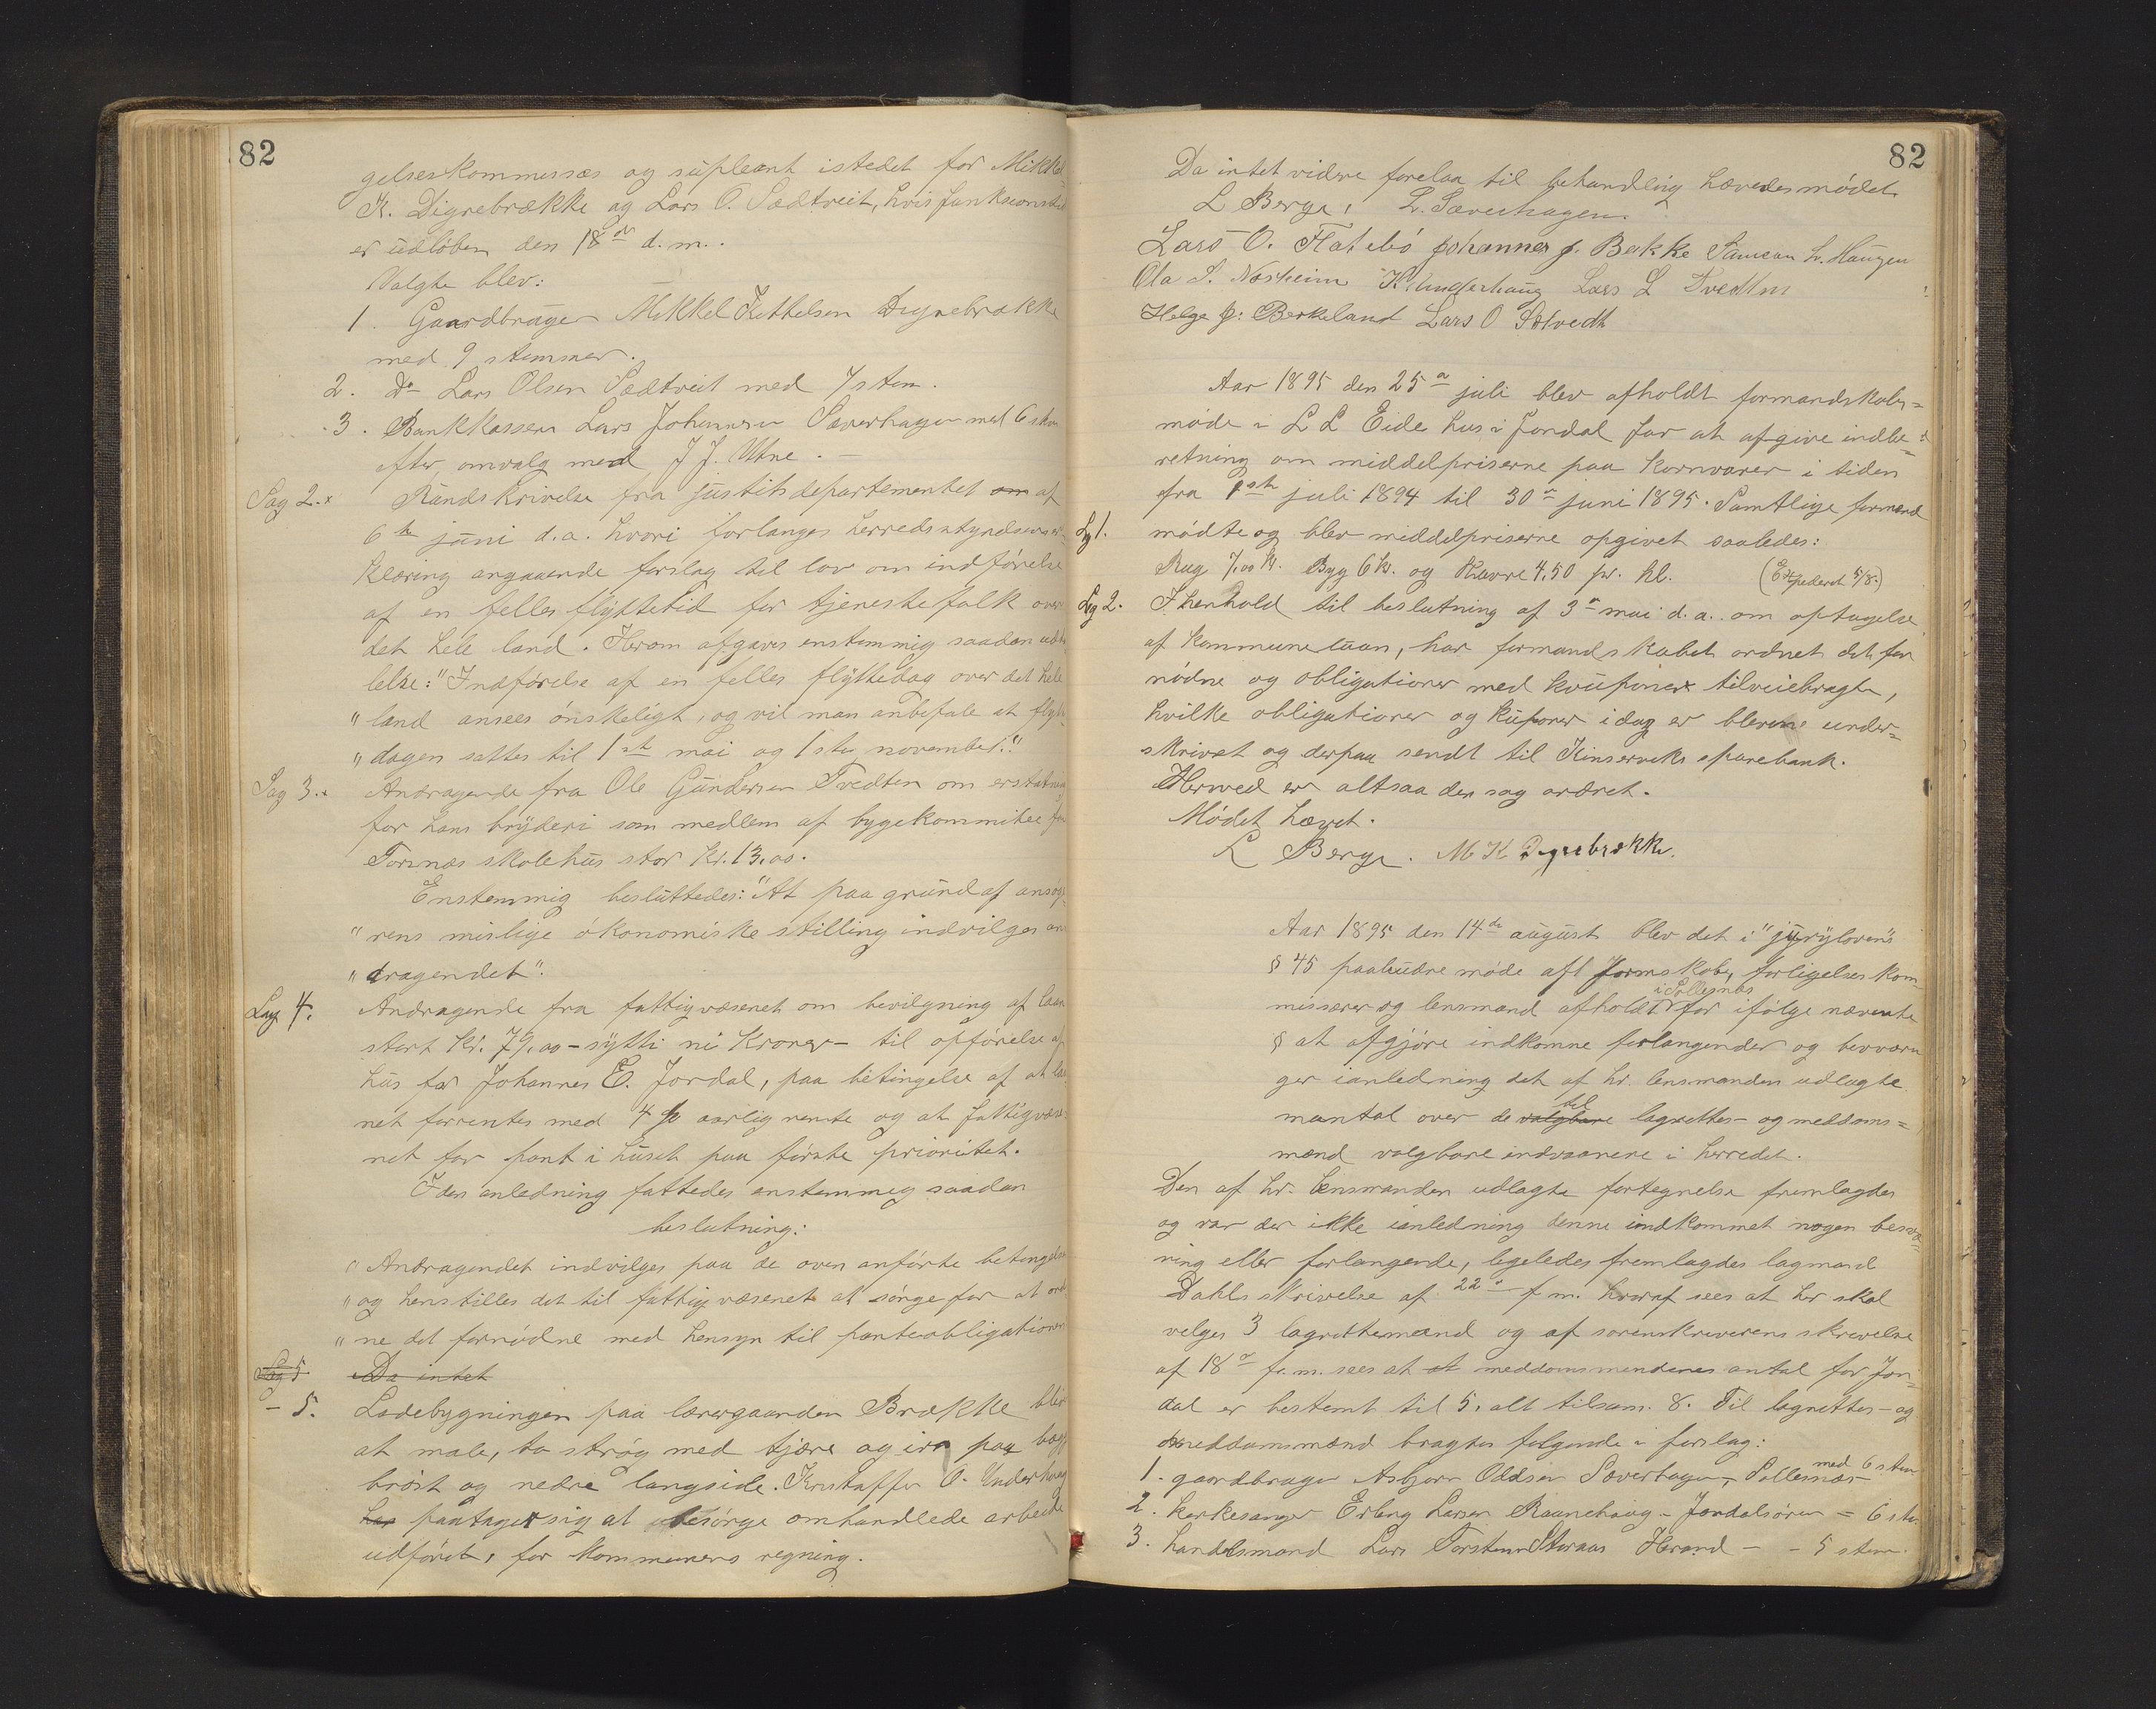 82
gelseskommissær og supleant istedet for Mikkel
K. Digrebrække og Lars O. Sædtveit, hvis funksionstid
er udløben den 18de d. m..
Valgte blev:
1. Gaardbruger Mikkel Kettelsen Digrebrække
med 9 stemmer.
2. Do Lars Olsen Sædtveit med 7 stem.
3. Bankkasserer Lars Johannesen Sæverhagen med 6 stem
efter omvalg med J J. Utne. —
Sag 2. Rundskrivelse fra justitsdepartementet om af
6te juni d. a. hvori forlanges herredsstyrdsens er-
klæring angaaende forslag til lov om indførelse
af en felles flyttetid for tjenestefolk over
det hele land. Herom afgaves enstemmig saadan udta
lelse: "Indførelse af en felles flyttedag over det hele
" land ansees ønskeligt, og vil man anbefale at flytte
" dagen sættes til 1ste mai og 1ste november."
Sag 3. Andragende fra Ole Gundersen Tvedten om erstatning
for hans bryderi som medlem af bygekommitee for
Torsnæs skolehus stor kr. 13,00.
Enstemmig besluttedes: "At paa grund af ansøge
" rens mislige økonomiske stilling indvilges an
" dragendet".
Sag 4. Andragende fra fattigvæsenet om bevilgning af laan
stort kr. 79,00 – sytti ni kroner – til opførelse af
hus for Johannes E. Jordal, paa betingelse af at laa
net forrentes med 4 % aarlig rente og at fattigvæse
net for pant i huset paa første prioritet.
I den anledning fattedes enstemmig saadan
beslutning:
" Andragendet indvilges paa de oven anførte betingelse
" og henstilles det til fattigvæsenet at sørge for at ord
" ne det fornødne med hensyn til panteobligationen
Sag 5. Da intet
– 5. Ladebygningen paa lærergaarden Brække blir
at male, to strøg med tjære og paa begge
brøst og nedre langside. Kristaffer O. Underhaug
har paatager sig at besørge omhandlede arbeide
udført, for kommunens regning.
82
Da intet videre forelaa til behandling hævedes mødet.
L Berge, L. Sæverhagen.
Lars O. Flatebø Johannes J. Bakke Samson L. Haugen
Ola S. Næsheim K Underhaug Lars L Tvedten
Helge J: Berkeland Lars O Sætvedt
Aar 1895 den 25de juli blev afholdt formandskabs=
møde i L L Eides hus i Jondal for at afgive indbe=
retning om middelpriserne paa kornvarer i tiden
fra 1ste juli 1894 til 30te juni 1895. Samtlige formænd
Sg 1. mødte og blev middelpriserne opgivet saaledes:
Rug 7,00 kr. Byg 6 kr. og Havre 4,50 pr. hl. (Expederet 5/8.)
Sg 2. I henhold til beslutning af 3de mai d. a. om optagelse
af kommunelaan, har formandskabet ordnet det for
nødne og obligationer med kuponer tilveiebragte,
hvilke obligationer og kuponer idag er blevne under=
skrivet og derpaa sendt til Kinserviks sparebank.
Herved er altsaa den sag ordnet.
Mødet hævet.
L Berge. M K Digrebrække.
Aar 1895 den 14de august blev det i "jurylovens
§ 45 paabudne møde afl formskabs, forligelseskom-
missærer og lensmand afholdt i Sollesnæs for ifølge nævnte
§ at afgjøre indkomne forlangender og besværin
ger ianledning det af hr. lensmanden udlagte
mantal over de valgbare til lagrettes- og meddoms=
mænd valgbare indvaanere i herredet.
Den af hr. lensmanden udlagte fortegnelse fremlagdes
og var der ikke ianledning denne indkommet nogen besvæ=
ring eller forlangende, legeledes fremlagdes lagmand
Dahls skrivelse af 22de f. m. hvoraf sees at her skal
velges 3 lagrettemænd og af sorenskriverens skrivelse
af 18de f. m. sees at at meddomsmendenes antal for Jon=
dal er bestemt til 5, alt tilsam. 8. Til lagrettes- og
meddomsmænd bragtes følgende i forslag:
1. gaardbruger Asbjørn Oddsen Sæverhagen, Sollesnæs med 6 stem
2. kerkesanger Erling Larsen Raunehaug – Jondalsøren – 6 ste.
3. handelsmand Lars Torstensen Storaas Herand – – 5 stem.